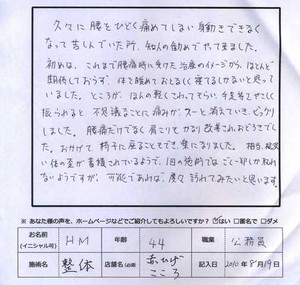 久々に腰をひどく痛めてしまい身動きできなく
なって苦しんでいた所、知人の勧めでやって来ました。
初めは、これまで腰痛時に受けた治療のイメージから、ほとんど
期待しておらず、体を暖めておとなしく寝てるしかないと思って
いました。ところが、ほんの軽くこれってくらい、手足等をやさしく
振られると、不思議なことに痛みがスーと消えていき、ビックリ
しました。腰痛だけでなく肩こりもかなり改善されおどろきでし
た。おかげで椅子に座ることもでき、楽になりました。相当、疲労
い体の歪が蓄積されているようで、1回の施術では、ごく一部しか取れ
ないようですが、可能であれば、度々訪れてみたいと思います。
※ あなた様の声を、ホームページなどでご紹介してもよろしいですか? はい □匿名で □ダメ
お名前 (イニシャル可) HM 年齢 44 職業 公務員
施術名 整体 店舗名 (必須) 赤ひげ こころ 記入日 2010年8月19日